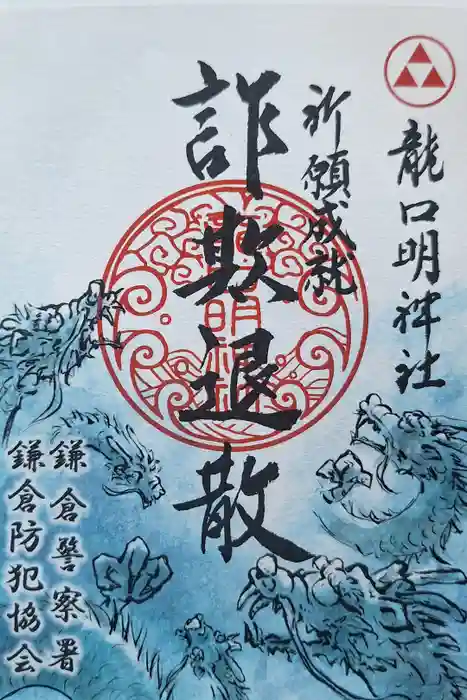 龍口明神社
祈願成就
詐欺退散
鎌倉警察署
鎌倉防犯協会